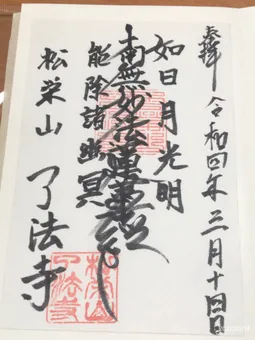 奉拝
令和四年三月十四日
如日月光明
南無妙法蓮華経
能除諸幽冥
松栄山
了法寺
松栄山
了法寺